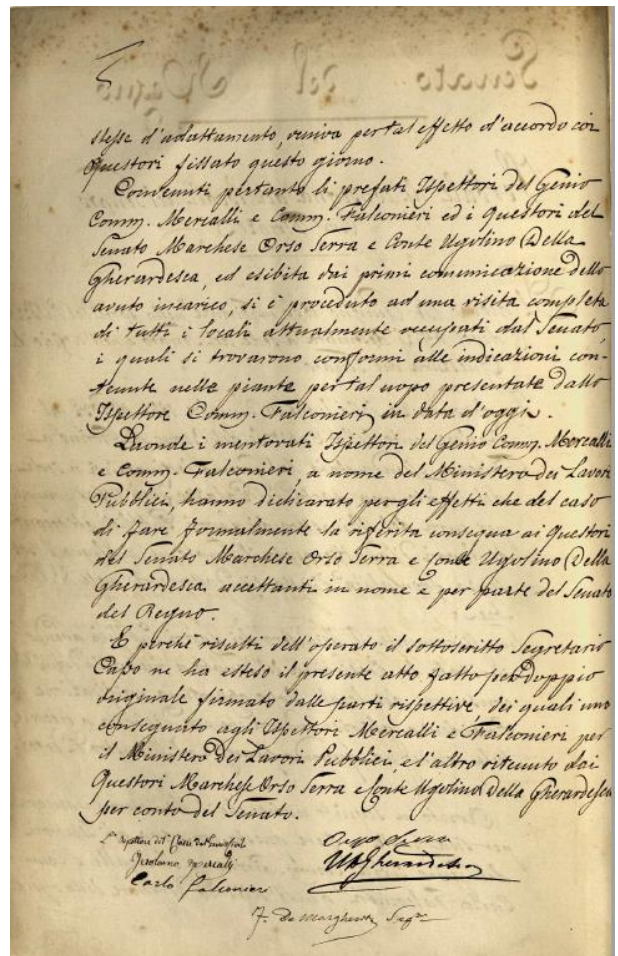 Senato del Regno
stesse d'adattamento, veniva per tal effetto d'accordo coi
Questori fissato questo giorno.
Convenuti pertanto li prefati Ispettori del Genio
Comm. Mercalli e Comm. Falconieri ed i Questori del
Senato Marchese Orso Serra e Conte Ugolino Della
Gherardesca, ed esibita dai primi comunicazione dello
avuto incarico, si è proceduto ad una visita completa
di tutti i locali attualmente occupati dal Senato,
i quali si trovarono conformi alle indicazioni con-
tenute nelle piante per tal uopo presentate dallo
Ispettore Comm. Falconieri in data d'oggi.
Laonde i mentovati Ispettori del Genio Comm. Mercalli
e Comm. Falconieri, a nome del Ministero dei Lavori
Pubblici, hanno dichiarato per gli effetti che del caso
di fare formalmente la riferita consegna ai Questori
del Senato Marchese Orso Serra e Conte Ugolino Della
Gherardesca accettanti in nome e per parte del Senato
del Regno.
E perchè risulti dell'operato il sottoscritto Segretario
Capo ne ha esteso il presente atto fatto per doppio
originale firmato dalle parti rispettive dei quali uno
consegnato agli Ispettori Mercalli e Falconieri per
il Ministero dei Lavori Pubblici, e l'altro ritenuto dai
Questori Marchese Orso Serra e Conte Ugolino Della Gherardesca
per conto del Senato.
Orso Serra
Mercalli
UDGherardesca
Carlo Falconieri
F. De Margherita Seg.